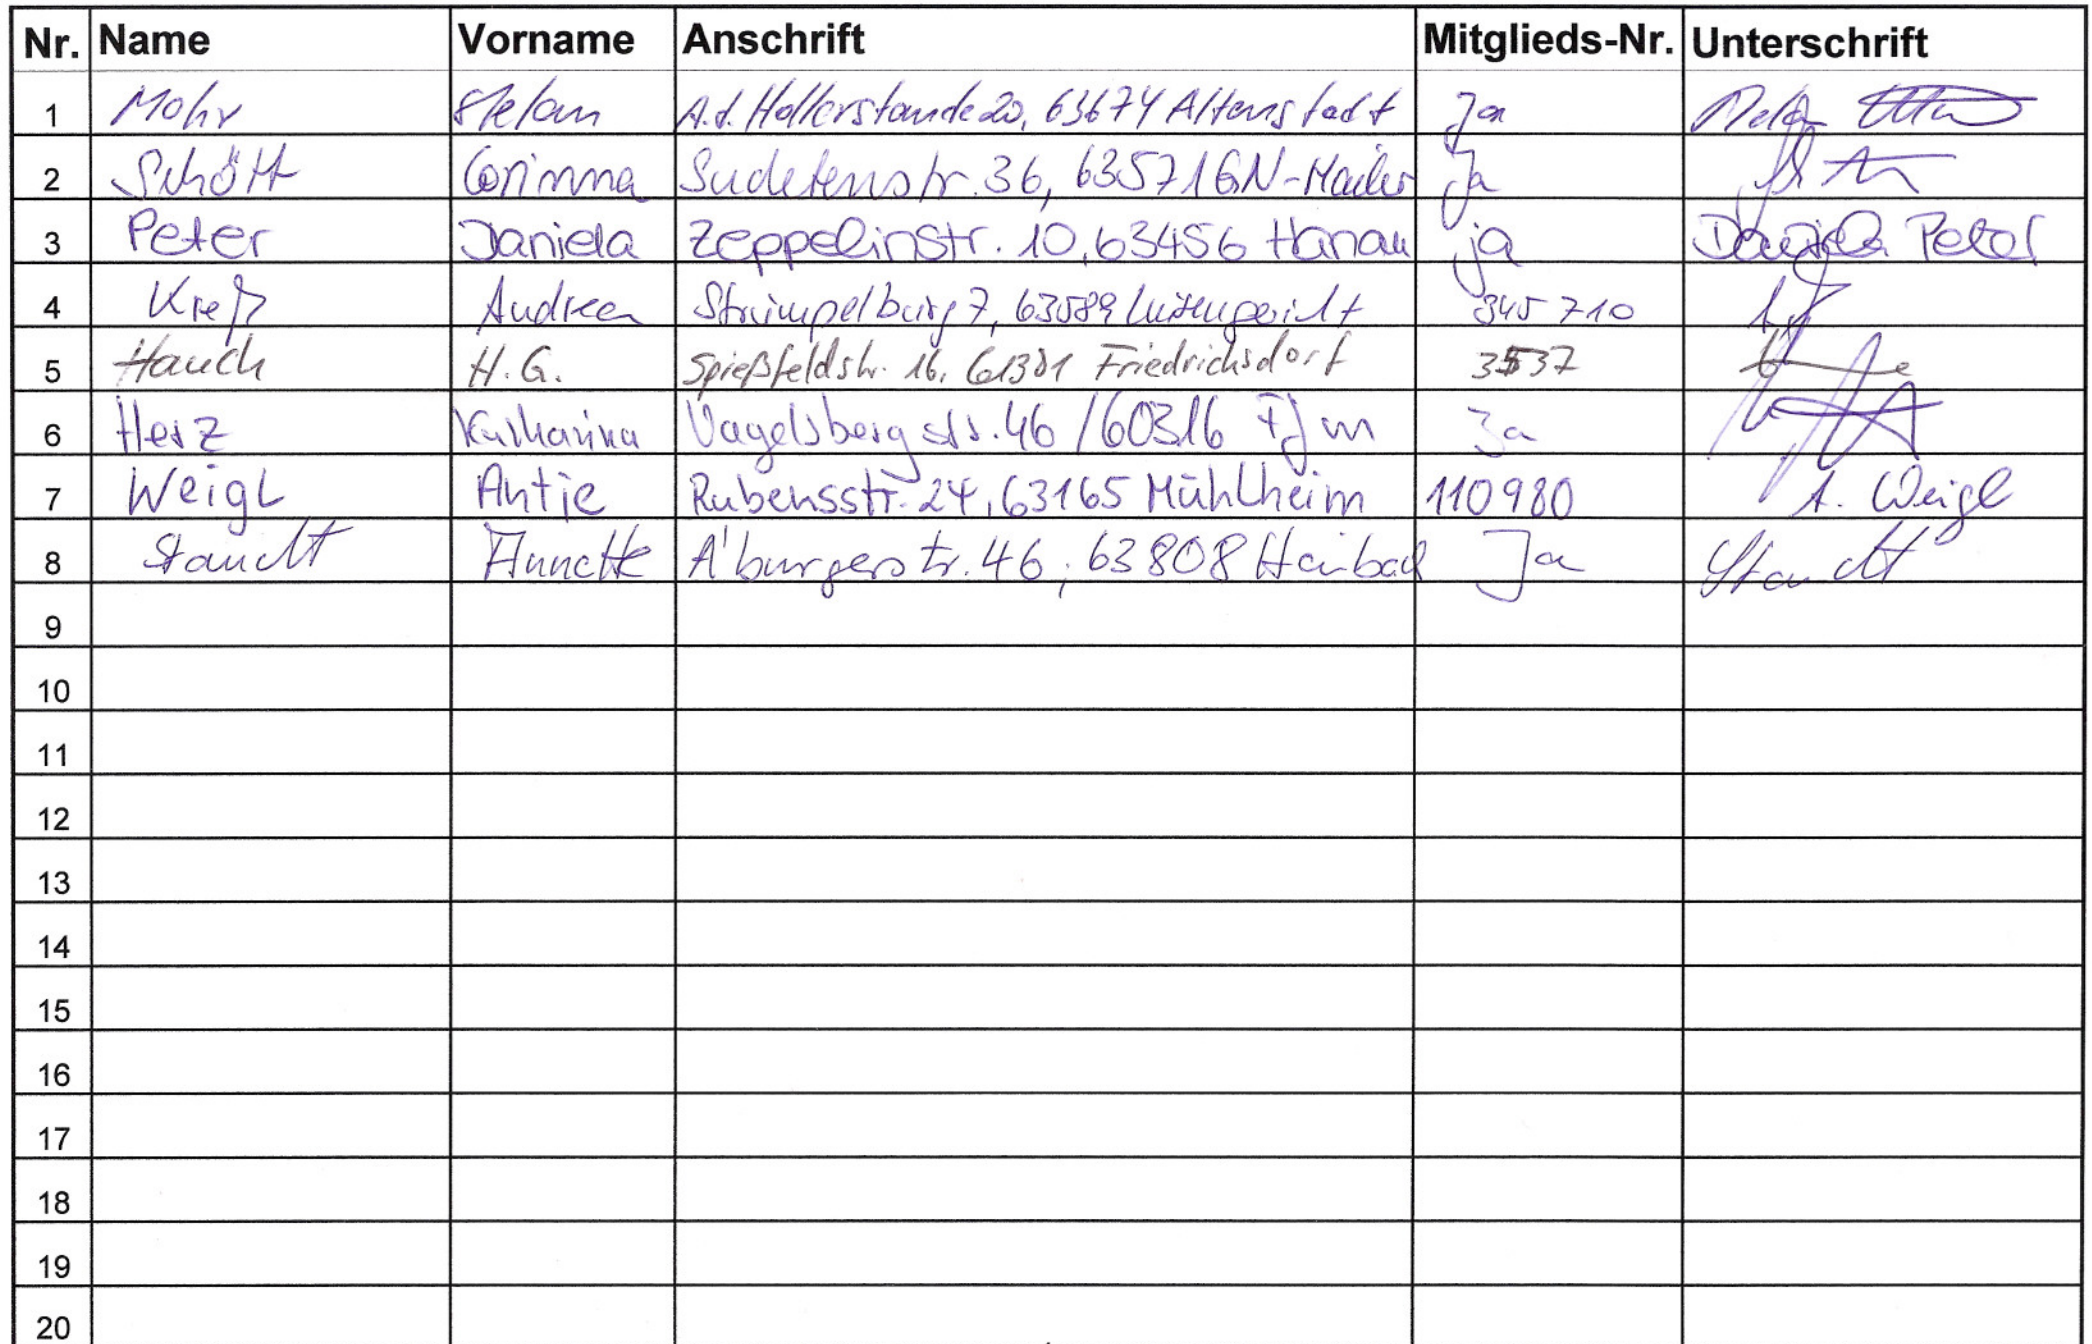 Nr. Name Vorname Anschrift Mitglieds-Nr. Unterschrift
1 Mohr Stefan A.d. Hollerstaude 20, 63674 Altenstadt Ja
2 Schött Corinna Sudetenstr. 36, 63571 GN-Hailer Ja
3 Peter Daniela Zeppelinstr. 10, 63456 Hanau ja Daniela Peter
4 Kreß Andrea 7, 63589 345 710
5 Hauch H.G. Spießfeldstr. 16, 61381 Friedrichsdorf 3537
6 Herz Katharina Vogelsbergstr. 46 / 60316 Ja
7 Weigl Antje Rubensstr. 24, 63165 Mühlheim 110980 A. Weigl
8 Staudt Annette A'burgerstr. 46, 63808 Haibach Ja Staudt
9
10
11
12
13
14
15
16
17
18
19
20